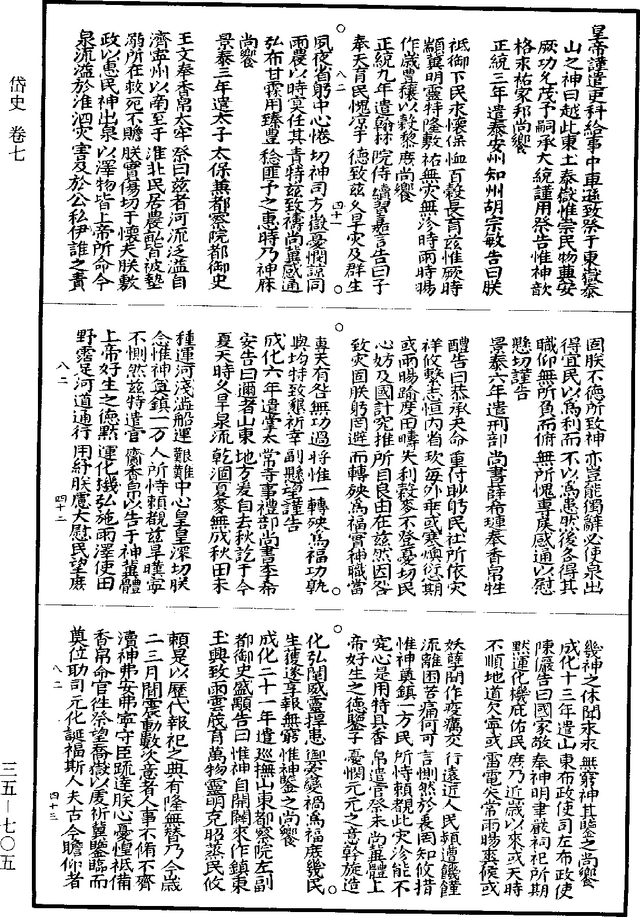 皇帝謹遣吏科給事中車遜致祭于東嶽泰
山之神曰越此東土泰嶽惟崇民物奠安
厥功允茂予嗣承大統謹用祭告惟神歆
格來祐家邦尚饗
正統三年遣泰安州知州胡宗敏告曰朕
祗御下民永懷保恤百穀長育茲惟厥時
顯冀明靈特隆敷祐無災無沴時雨時暘
作歲豊穰以穀黎庶尚饗
正統九年遣翰林院侍讀習嘉言告曰予
奉天育民愧涼于德致茲久旱災及群生
夙夜省躬中心惓切神司方嶽憂憫諒同
雨農以時寔任其責特茲致禱尚冀感通
弘布甘霖用臻豊稔匪予之惠時乃神庥
尚饗
景泰三年遣太子太保兼都察院都御史
王文奉香帛太牢祭曰茲者河流泛溢自
濟寧州以南至于淮北民居農畝皆被墊
溺所在救死不贍朕實傷切于懷夫朕敷
政以惠民神出泉以澤物皆上帝所命今
泉流溢於淮泗災害及於公私伊誰之責
八二
四十一
固朕不德所致神亦豈能獨辭必使泉出
得宜民以為利而不以為患然後各得其
職仰無所負而俯無所愧專候感通以慰
懸切謹告
景泰六年遣刑部尚書薛希璉奏香帛牲
醴告曰恭承天命重付眇躬民社所依災
祥攸繫志恒內省每外垂或寒燠衍期
或雨暘踰度田疇失利穀麥不登憂切民
心妨及國計究推所自良由在茲然因咎
致災固朕躬罔避而轉殃為福實神職當
專夫有咎無功過將惟一轉殃為福功孰
與均特致懇祈幸副懸望謹告
成化六年遣掌太常寺事禮部尚書李希
安告曰邇者山東地方爰自去秋訖于今
夏天時久旱泉流乾涸夏麥無成秋田未
種運河淺澁船運艱難中心皇皇深切朕
念惟神奠鎮一方人所恃賴覩茲旱暵寧
不惻然茲特遣官齎香帛以告于神冀體
上帝好生之德默運化機弘施雨澤使田
野霑足河道通行用紓朕慮大慰民望庶
八二
四十二
幾神之休聞永永無窮神其鑒之尚饗
成化十三年遣山東布政使司左布政使
陳儼告曰國家敬奉神明聿嚴祠祀所期
黙運化機庇佑民庶乃近歲以來或天時
不順地道欠寧或雷電失常雨暘爽候或
妖孽間作疫癘交行遠近人民頻遭饑饉
流離困苦痛何可言惻然於衷罔知攸措
惟神奠鎮一方民所恃賴覩此災沴能不
究心是用特具香帛遣官祭禾尚冀體上
帝好生之德鑒予憂憫元元之意幹旋造
化弘闡威靈捍患禦災變禍為福庶幾民
生獲遂享報無窮惟神鑒之尚饗
成化二十一年遣巡撫山東都察院左副
都御史盛顒告曰惟神自開闢來作鎮東
土興致雨雲發育萬物靈明克昭蒸民攸
賴是以歷代報祀之典有隆無替乃今歲
二三月間震動數次意者人事不脩不齊
瀆神弗安弗寧守臣疏達朕心憂惶祗備
香帛命官往祭望喬嶽以虔祈冀鑒臨而
奠位助司元化誕福斯人夫古今瞻仰者
八二
四十三
岱史 卷七
三五－七〇五